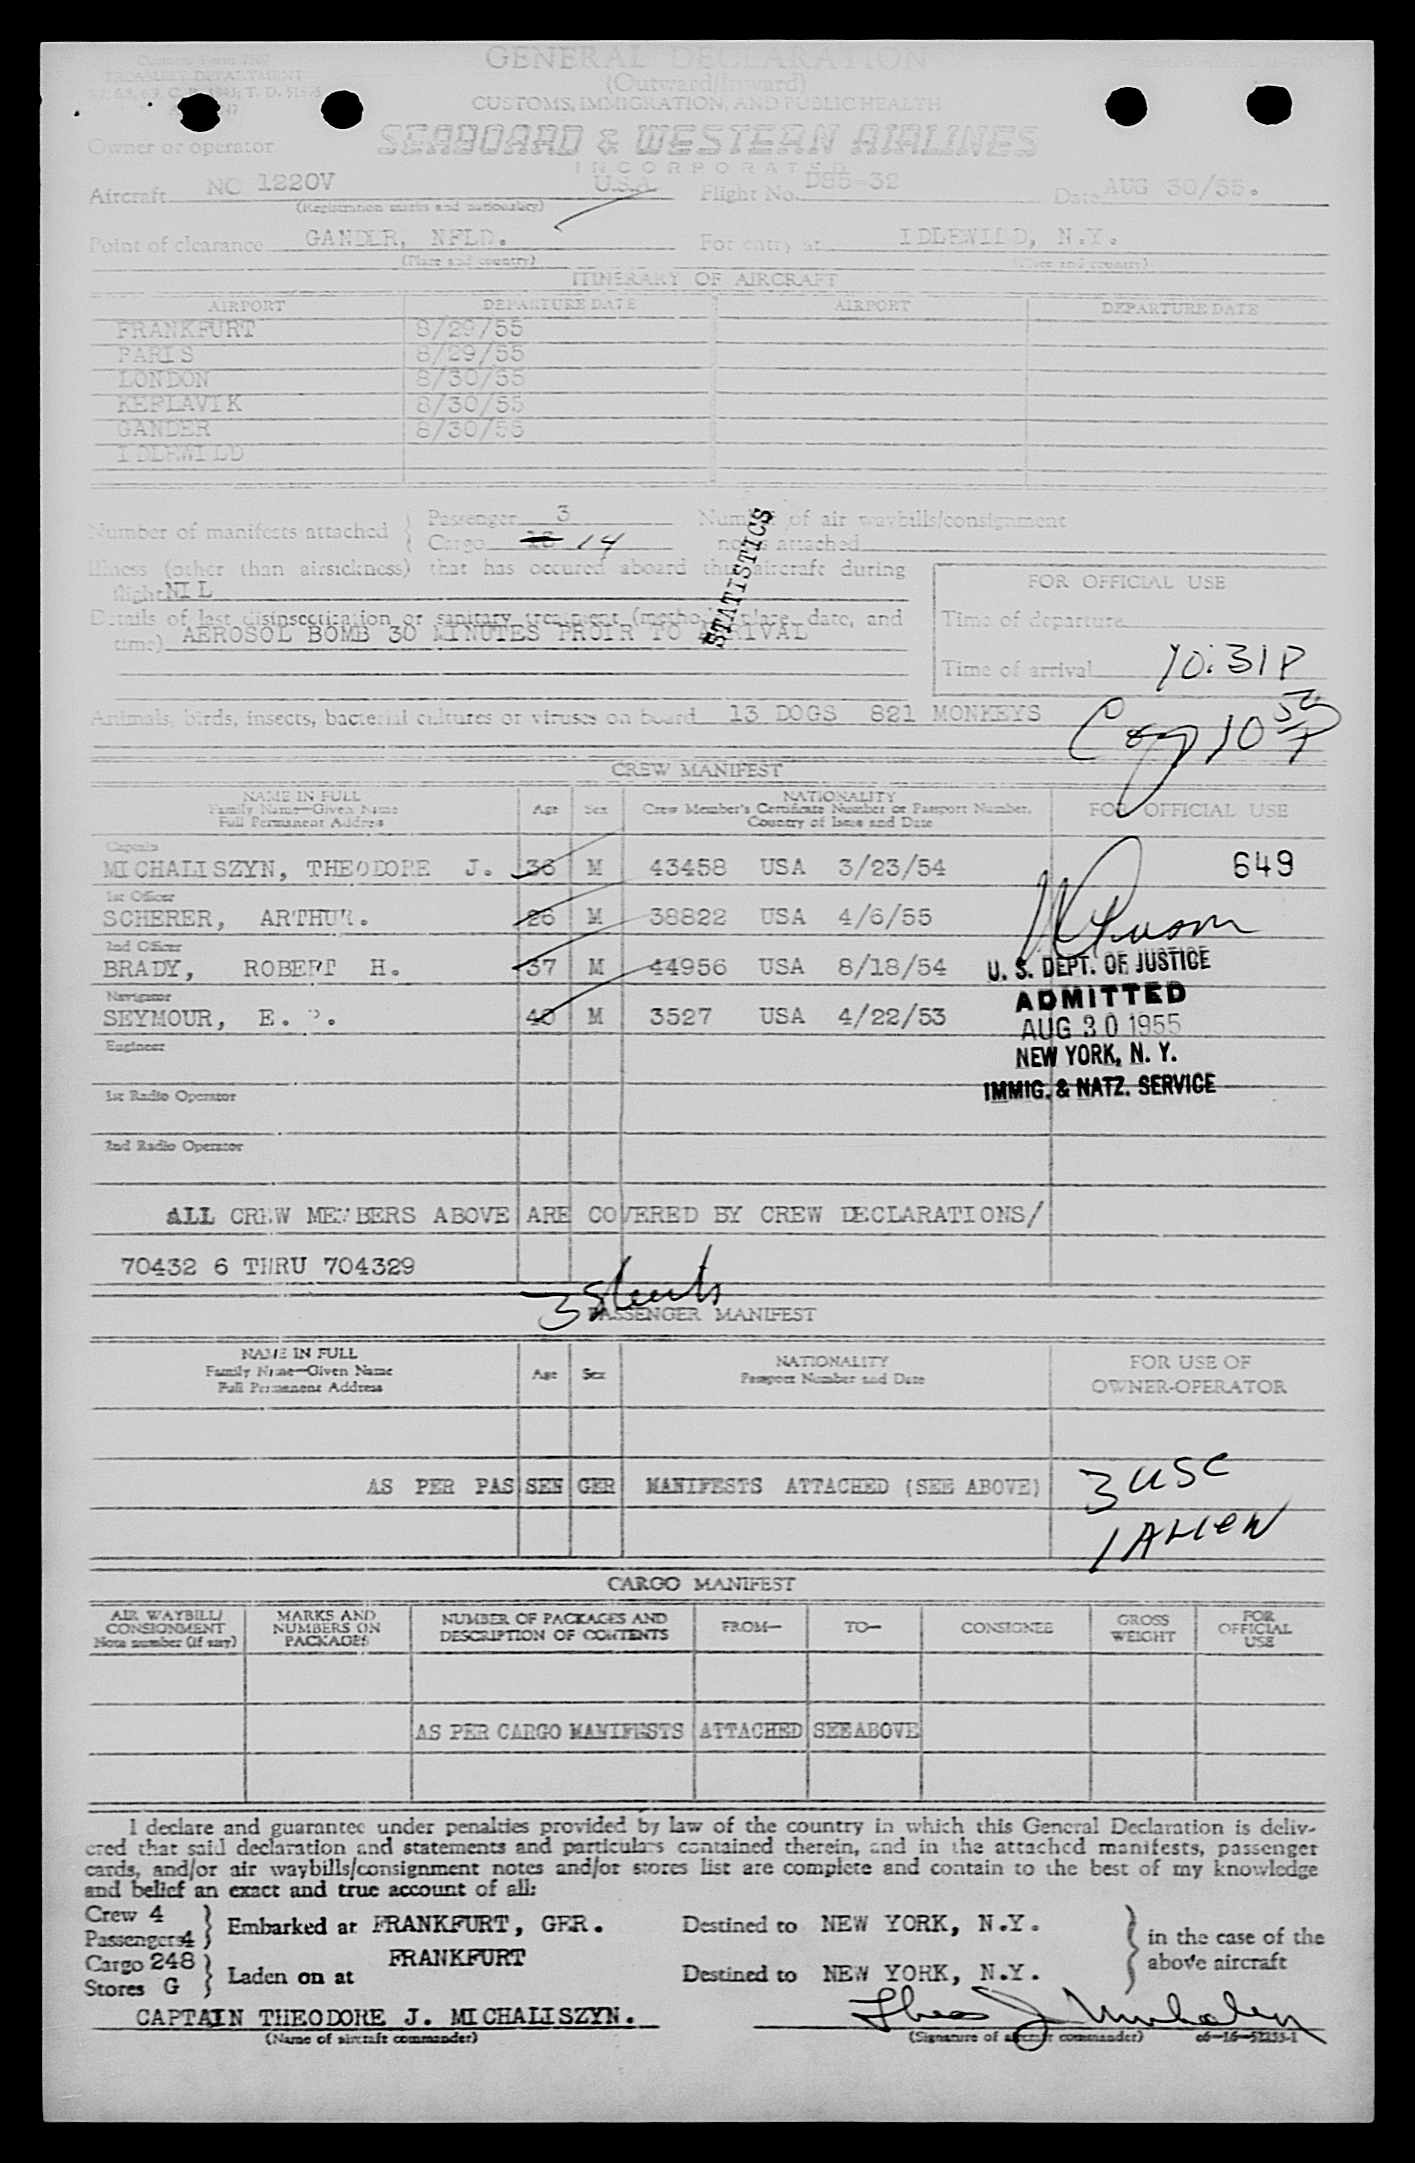 GENERAL DECLARATION
(Outward/Inward)
CUSTOMS, IMMIGRATION, AND PUBLIC HEALTH
TREASURY DEPARTMENT
Owner or operator SEABOARD & WESTERN AIRLINES
INCORPORATED
Aircraft NC 1220V U.S.A. Flight No. Date AUG 30/55.
(Registration marks and nationality)
Point of clearance GANDER, NFLD. For entry at IDLEWILD, N.Y.
(Place and country) (Place and country)
ITINERARY OF AIRCRAFT
AIRPORT DEPARTURE DATE AIRPORT DEPARTURE DATE
FRANKFURT 8/29/55
PARIS 8/29/55
LONDON 8/30/55
KEFLAVIK 8/30/55
GANDER 8/30/55
IDLEWILD
Number of manifests attached Passenger 3 Number of air waybills/consignment
Cargo 14 notes attached
STATISTICS
Illness (other than airsickness) that has occured aboard this aircraft during
flight NIL
FOR OFFICIAL USE
Details of last disinsectization or sanitary treatment (method, place, date, and
time) AEROSOL BOMB 30 MINUTES PROIR TO ARRIVAL
Time of departure
Time of arrival 10:31P
Animals, birds, insects, bacterial cultures or viruses on board 13 DOGS 821 MONKEYS
CREW MANIFEST
NAME IN FULL
Family Name—Given Name
Full Permanent Address
Age Sex
NATIONALITY
Crew Member's Certificate Number or Passport Number,
Country of Issue and Date
FOR OFFICIAL USE
Captain
MICHALISZYN, THEODORE J. 36 M 43458 USA 3/23/54 649
1st Officer
SCHERER, ARTHUR. 26 M 38822 USA 4/6/55
2nd Officer
BRADY, ROBERT H. 37 M 44956 USA 8/18/54
Navigator
SEYMOUR, E. P. 40 M 3527 USA 4/22/53
U. S. DEPT. OF JUSTICE
ADMITTED
AUG 30 1955
NEW YORK, N. Y.
IMMIG. & NATZ. SERVICE
Engineer
1st Radio Operator
2nd Radio Operator
ALL CREW MEMBERS ABOVE ARE COVERED BY CREW DECLARATIONS/
70432 6 THRU 704329
3 sheets
PASSENGER MANIFEST
NAME IN FULL
Family Name—Given Name
Full Permanent Address
Age Sex
NATIONALITY
Passport Number and Date
FOR USE OF
OWNER-OPERATOR
AS PER PASSENGER MANIFESTS ATTACHED (SEE ABOVE)
3 USC
1 ALIEN
CARGO MANIFEST
AIR WAYBILL/
CONSIGNMENT
Note number (if any)
MARKS AND
NUMBERS ON
PACKAGES
NUMBER OF PACKAGES AND
DESCRIPTION OF CONTENTS
FROM— TO— CONSIGNEE
GROSS
WEIGHT
FOR
OFFICIAL
USE
AS PER CARGO MANIFESTS ATTACHED SEE ABOVE
I declare and guarantee under penalties provided by law of the country in which this General Declaration is deliv-
ered that said declaration and statements and particulars contained therein, and in the attached manifests, passenger
cards, and/or air waybills/consignment notes and/or stores list are complete and contain to the best of my knowledge
and belief an exact and true account of all:
Crew 4
Passengers 4 Embarked at FRANKFURT, GER. Destined to NEW YORK, N.Y.
Cargo 248
Stores G Laden on at FRANKFURT Destined to NEW YORK, N.Y.
in the case of the
above aircraft
CAPTAIN THEODORE J. MICHALISZYN.
(Name of aircraft commander) (Signature of aircraft commander)